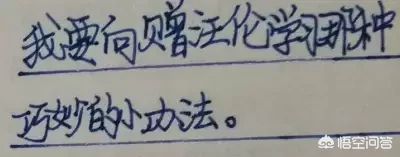 我要向赠汪伦学习那种
巧妙的小功法。
悟空问答